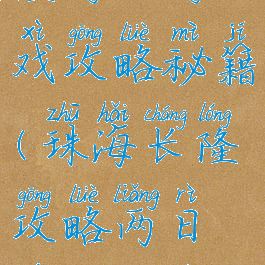 xì gōng lüè mì jí
戏攻略秘籍
zhū hǎi cháng lóng
(珠海长隆
gōng lüè liǎng rì
攻略两日